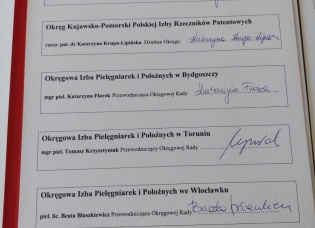 Okręg Kujawsko-Pomorski Polskiej Izby Rzeczników Patentowych
rzecz. pat. dr Katarzyna Krupa-Lipińska Dziekan Okręgu
Okręgowa Izba Pielęgniarek i Położnych w Bydgoszczy
mgr piel. Katarzyna Florek Przewodnicząca Okręgowej Rady
Katarzyna Florek
Okręgowa Izba Pielęgniarek i Położnych w Toruniu
mgr piel. Tomasz Krzysztyniak Przewodniczący Okręgowej Rady
Okręgowa Izba Pielęgniarek i Położnych we Włocławku
piel. lic. Beata Błaszkiewicz Przewodnicząca Okręgowej Rady